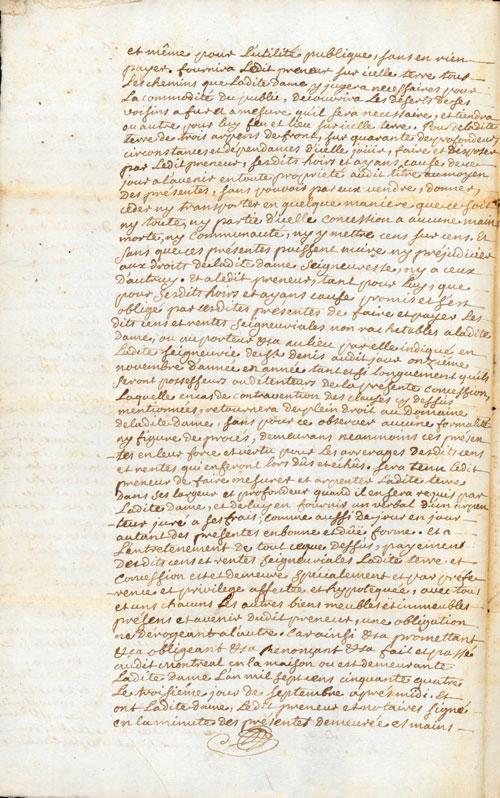 et même pour L'utilité publique, sans en rien
payer. fournira Ledit preneur sur icelle terre tous
Les chemins que Ladite Dame y jugera necessaires pour
La commodité du public, decouvrira Les déserts de ses
voisins a fur et a mesure qu'il sera necessaire, et tiendra
ou autre pour luy feu et lieu sur icelle terre. Pour deladite
terre de trois arpens de front, sur quarante de profondeur
circonstances et dependances d'icelle joüir, faire et disposer
par Ledit preneur, sesdits hoirs et ayans cause de ce
jour a l'avenir en toute proprieté audit titre au moyen
des presentes, sans pouvoir par eux vendre, donner,
ceder ny transporter en quelque maniere que ce soit
ny toute, ny partie d'icelle concession a aucune main
morte, ny communauté, ny y mettre cens sur cens. Et
sans que ces presentes puissent nuire ny prejudicier
aux droits de ladite dame Seigneuresse, ny a ceux
d'autruy. et a ledit preneur, tant pour Luy que
pour sesdits hoirs et ayans cause promis et s'est
obligé par cesdites presentes de faire et payer Les
dits cens et rentes seigneuriales non rachetables a ladite
dame, ou au porteur &a au lieu par elle indiqué en
Ladite seigneurie de St. denis audit jour onzieme
novembre d'année en année tant et si longuement qu'ils
seront possesseurs ou detenteurs de la presente concession,
Laquelle en cas de contravention des clauses cy dessus
mentionnées, retournera de plein droit au domaine
de ladite dame, sans pour ce observer aucune formalité
ny figure de procés, demeurans neanmoins ces presen-
tes en leur force et vertu pour Les arrerages desdits cens
et rentes qui en seront lors dûs et échûs. sera tenu Ledit
preneur de faire mesurer et arpenter Ladite terre
dans ses largeur et profondeur quand il en sera requis par
Ladite dame, et de luy en fournir un verbal d'un arpen-
teur juré a ses frais, comme aussi de jour en jour
autant des presentes en bonne et düe forme. et a
L'entretenement de tout ce que dessus, payement
desdits cens et rentes seigneuriales Ladite terre et
Concession est et demeure specialement et par prefe-
rence et privilege affectée et hypotequée, avec tous
et uns chacuns Les autres biens meubles et immeubles
présens et avenir dudit preneur, une obligation
ne dérogeant a l'autre. Car ainsi &a promettant
&a obligeant &a renonçant &a fait et passé
audit montreal en la maison ou est demeurante
Ladite dame L'an mil sept cens cinquante quatre
Le troisieme jour de septembre aprés midi. Et
ont Ladite dame, Ledit preneur et notaires signé
en la minute des presentes demeurée es mains